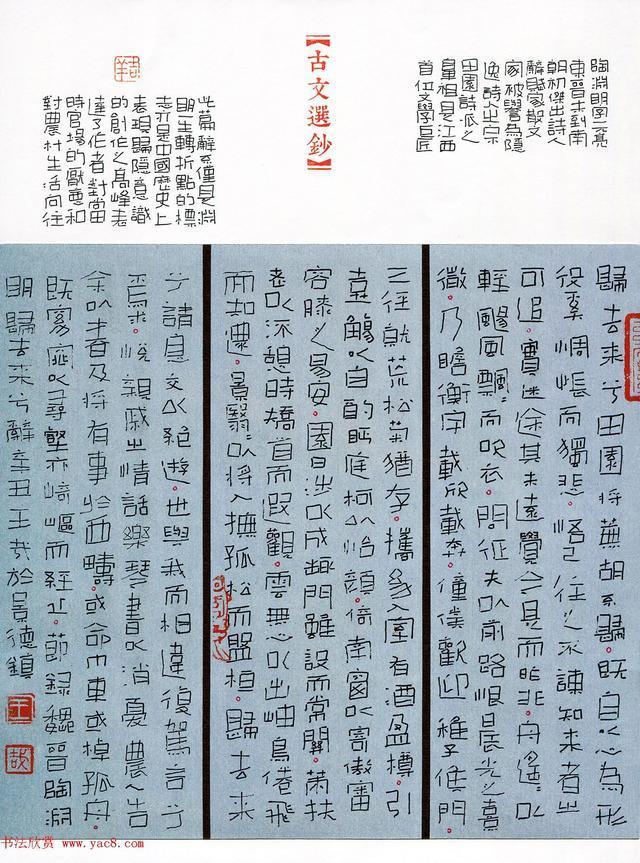 陶淵明字元亮
東晉末到南
朝初傑出詩人
辭賦家散文
家被譽為隱
逸詩人之宗
田園詩派之
皇祖是江西
首位文學巨匠
【古文選鈔】
此篇辭不僅是淵
明一生轉折點的標
志亦是中國歷史上
表現歸隱意識
的創作之高峰表
達了作者對當
時官場的厭惡和
對農村生活向往
歸去來兮田園將蕪胡不歸。既自以心為形
役奚惆悵而獨悲。悟已往之不諫知來者之
可追。實迷途其未遠覺今是而昨非。舟遙遙以
輕颺風飄飄而吹衣。問征夫以前路恨晨光之熹
微。乃瞻衡宇載欣載奔。僮僕歡迎稚子候門。
三徑就荒松菊猶存。攜幼入室有酒盈樽。引
壺觴以自酌眄庭柯以怡顏。倚南窗以寄傲審
容膝之易安。園日涉以成趣門雖設而常關。策扶
老以流憩時矯首而遐觀。雲無心以出岫鳥倦飛
而知還。景翳翳以將入撫孤松而盤桓。歸去來
兮請息交以絕遊。世與我而相違復駕言兮
焉求。悅親戚之情話樂琴書以消憂。農人告
余以春及將有事於西疇。或命巾車或棹孤舟。
既窈窕以尋壑亦崎嶇而經丘。節錄魏晉陶淵
明歸去來兮辭辛丑王哉於景德鎮
王
哉
书法欣赏 www.yac8.com